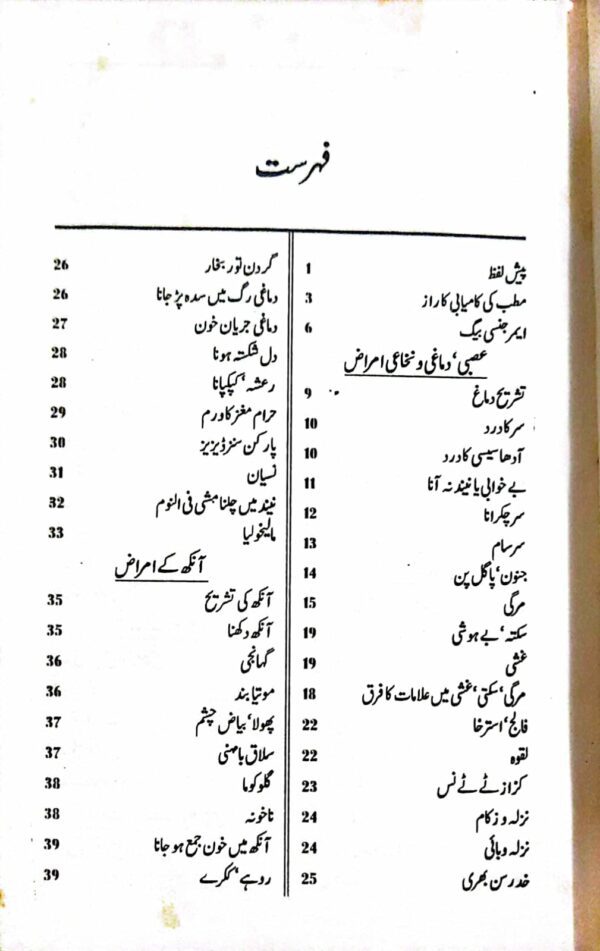 فہرست
پیش لفظ 1
مطب کی کامیابی کا راز 3
ایمرجنسی بیگ 6
عصبی، دماغی و نخاعی امراض
تشریح دماغ 9
سر کا درد 10
آدھا سیسی کا درد 10
بے خوابی یا نیند نہ آنا 11
سر چکرانا 12
سرسام 13
جنون، پاگل پن 14
مرگی 15
سکتہ، بے ہوشی 19
غشی 19
مرگی، سکتی، غشی میں علامات کا فرق 18
فالج، استرخا 22
لقوہ 22
کزاز ٹے ٹے نس 23
نزلہ و زکام 24
نزلہ وبائی 24
خدر سن بھری 25
گردن توڑ بخار 26
دماغی رگ میں سدہ پڑ جانا 26
دماغی جریان خون 27
دل شکستہ ہونا 28
رعشہ، کپکپانا 28
حرام مغز کا ورم 29
پارکن سنز ڈیزیز 30
نسیان 31
نیند میں چلنا مشی فی النوم 32
مالیخولیا 33
آنکھ کے امراض
آنکھ کی تشریح 35
آنکھ دکھنا 35
گہانجی 36
موتیا بند 36
پھولا، بیاض چشم 37
سلاق باہمنی 37
گلوکوما 38
ناخونہ 38
آنکھ میں خون جمع ہو جانا 39
روہے، ککرے 39